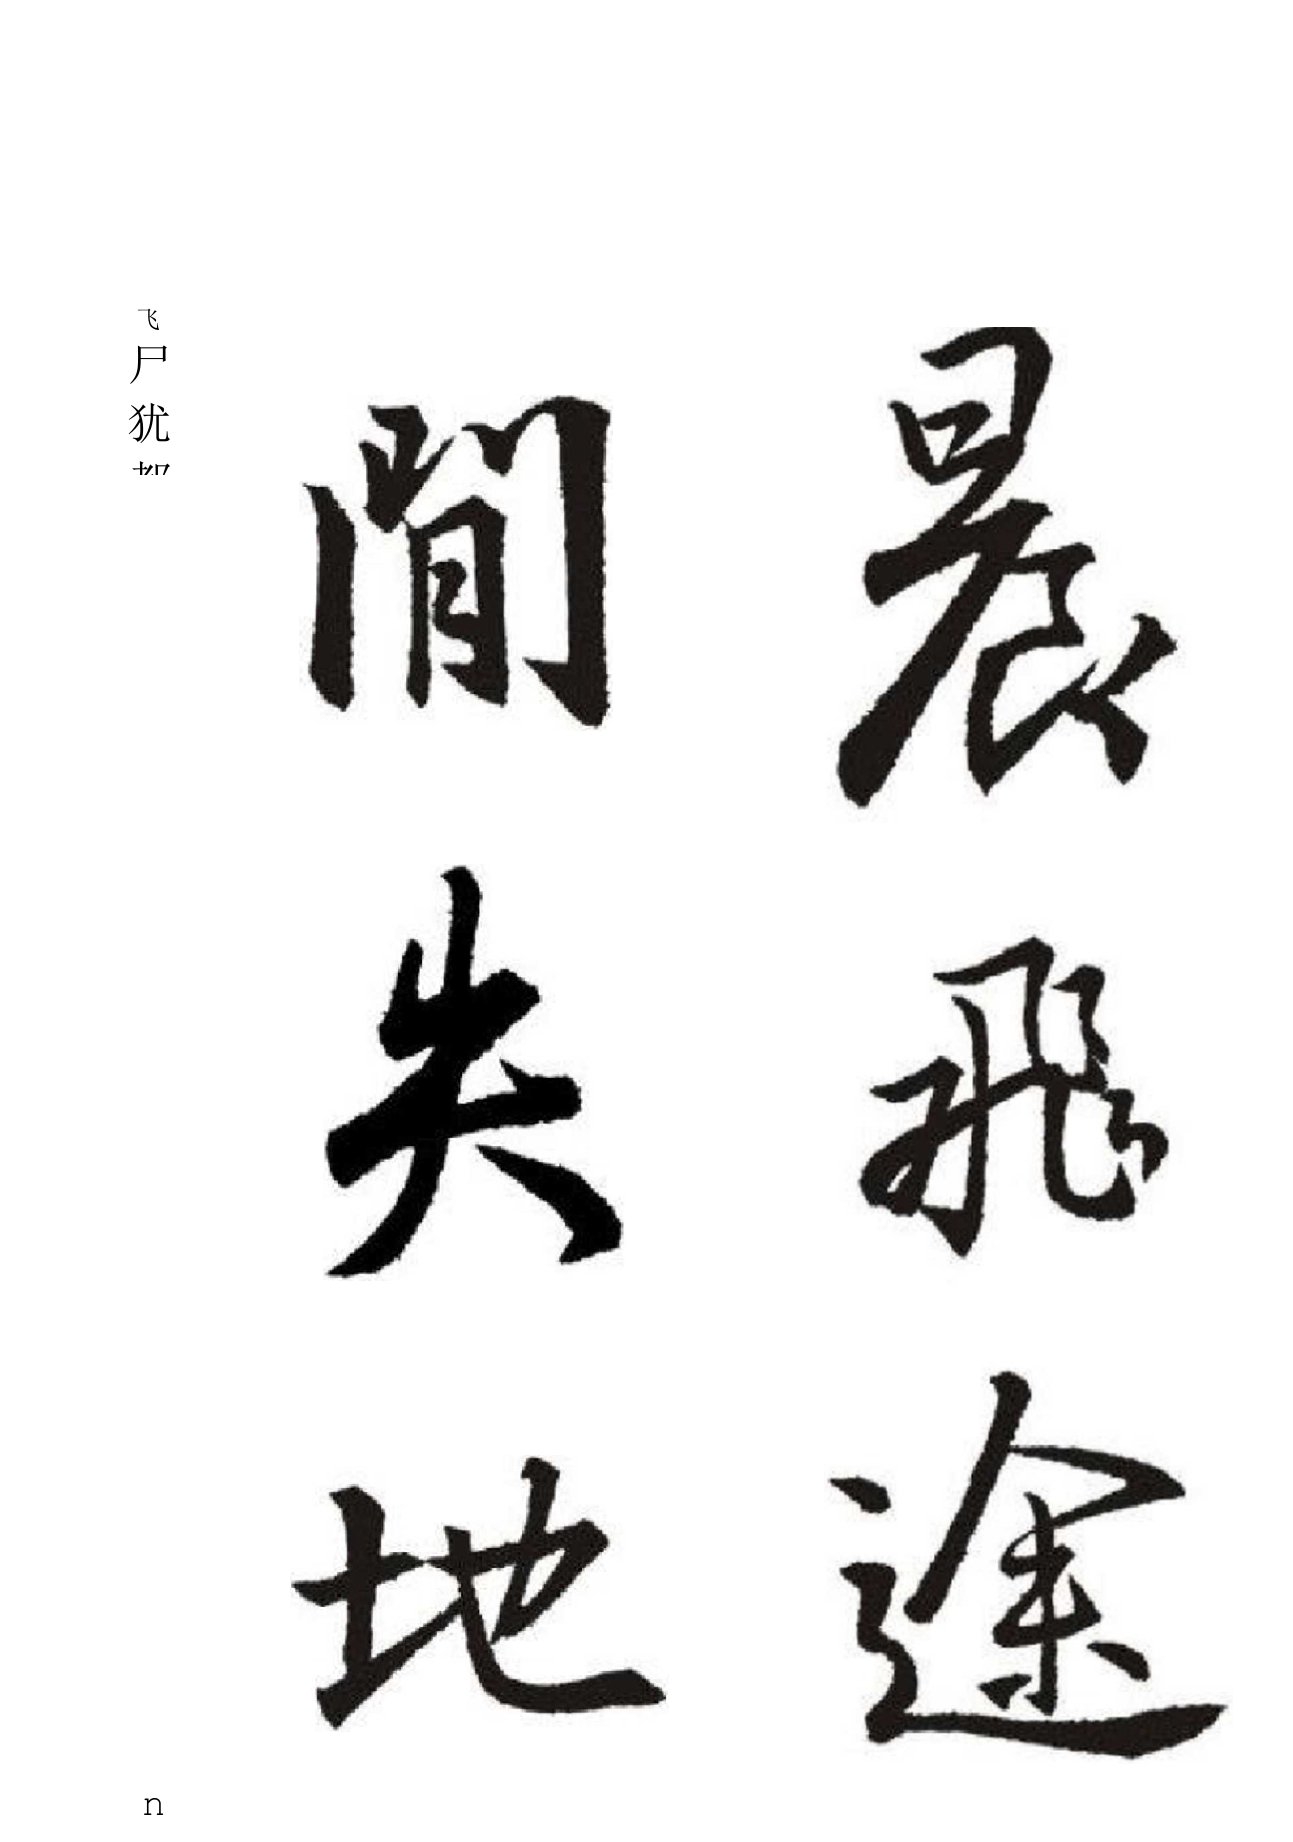 晨飛途
閒失地
飞
尸
犹
n